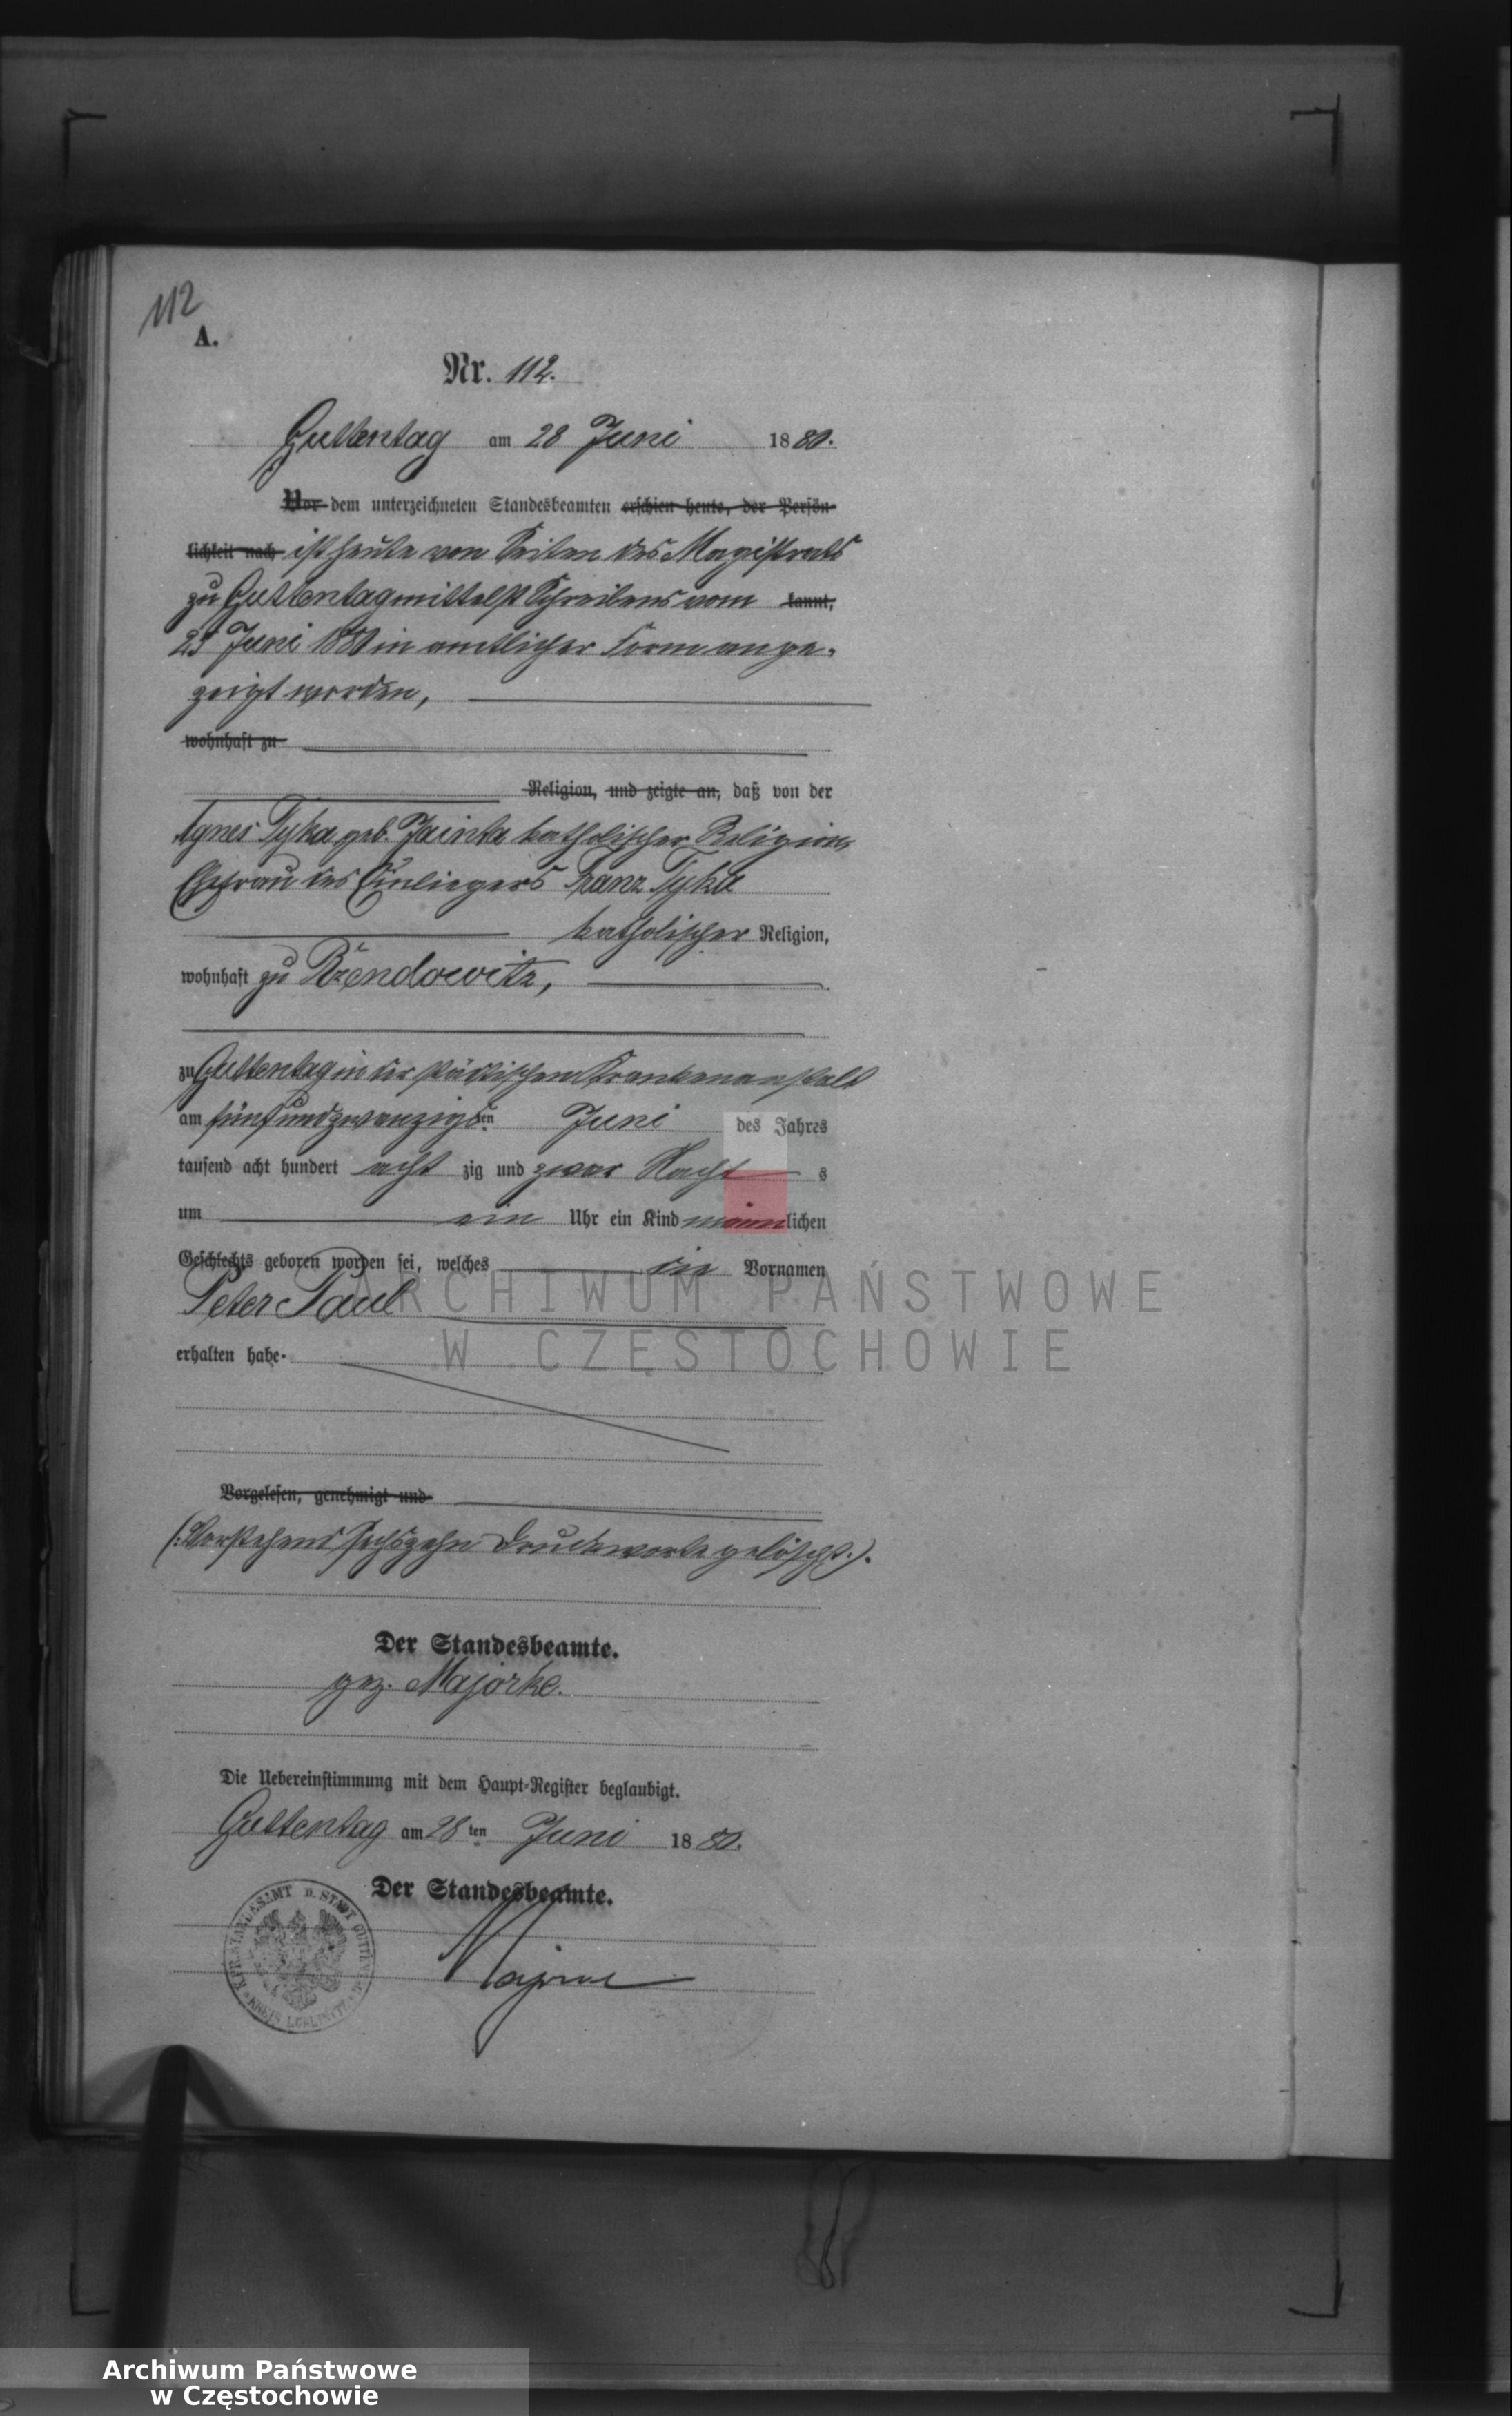 112
A.
Nr. 112.
Guttentag am 28 Juni 1880.
Vor dem unterzeichneten Standesbeamten erschien heute, der Persön-
lichkeit nach ist heute von Seiten des Magistrats
zu Guttentag mittelst Schreibens vom kannt,
25 Juni 1880 in amtlicher Form ange-
zeigt worden,
wohnhaft zu
Religion, und zeigte an, daß von der
Agnes Tyka geb. Jainta katholischer Religion,
Ehefrau des Einliegers Franz Tyka
katholischer Religion,
wohnhaft zu Rzendowitz,
zu Guttentag in der städtischen Krankenanstalt
am fünfundzwanzigsten Juni des Jahres
tausend acht hundert acht zig und zwar Nacht s
um ein Uhr ein Kind männlichen
Geschlechts geboren worden sei, welches die Vornamen
Peter Paul
erhalten habe.
Vorgelesen, genehmigt und
(: Vorstehend sechszehn Druckworte gelöscht. :)
Der Standesbeamte.
gez. Majorke.
Die Uebereinstimmung mit dem Haupt-Register beglaubigt.
Guttentag am 28 ten Juni 1880.
Der Standesbeamte.
KPR. STANDESAMT D. STADT GUTTENTAG
KREIS LUBLINITZ
ARCHIWUM PAŃSTWOWE
W CZĘSTOCHOWIE
Archiwum Państwowe
w Częstochowie